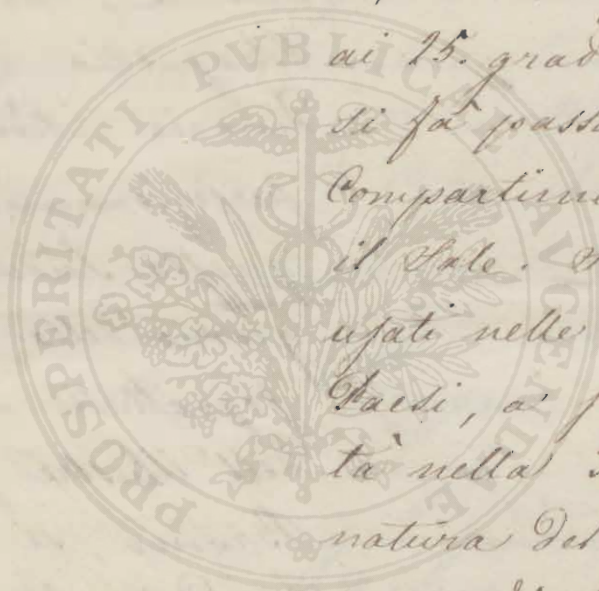 PROSPERITATI PVBLICAE AVGENDAE
ai 25. grad
si fà passa
Compartime
il Sale.
usati nelle
Paesi, a'
tà nella
natura del